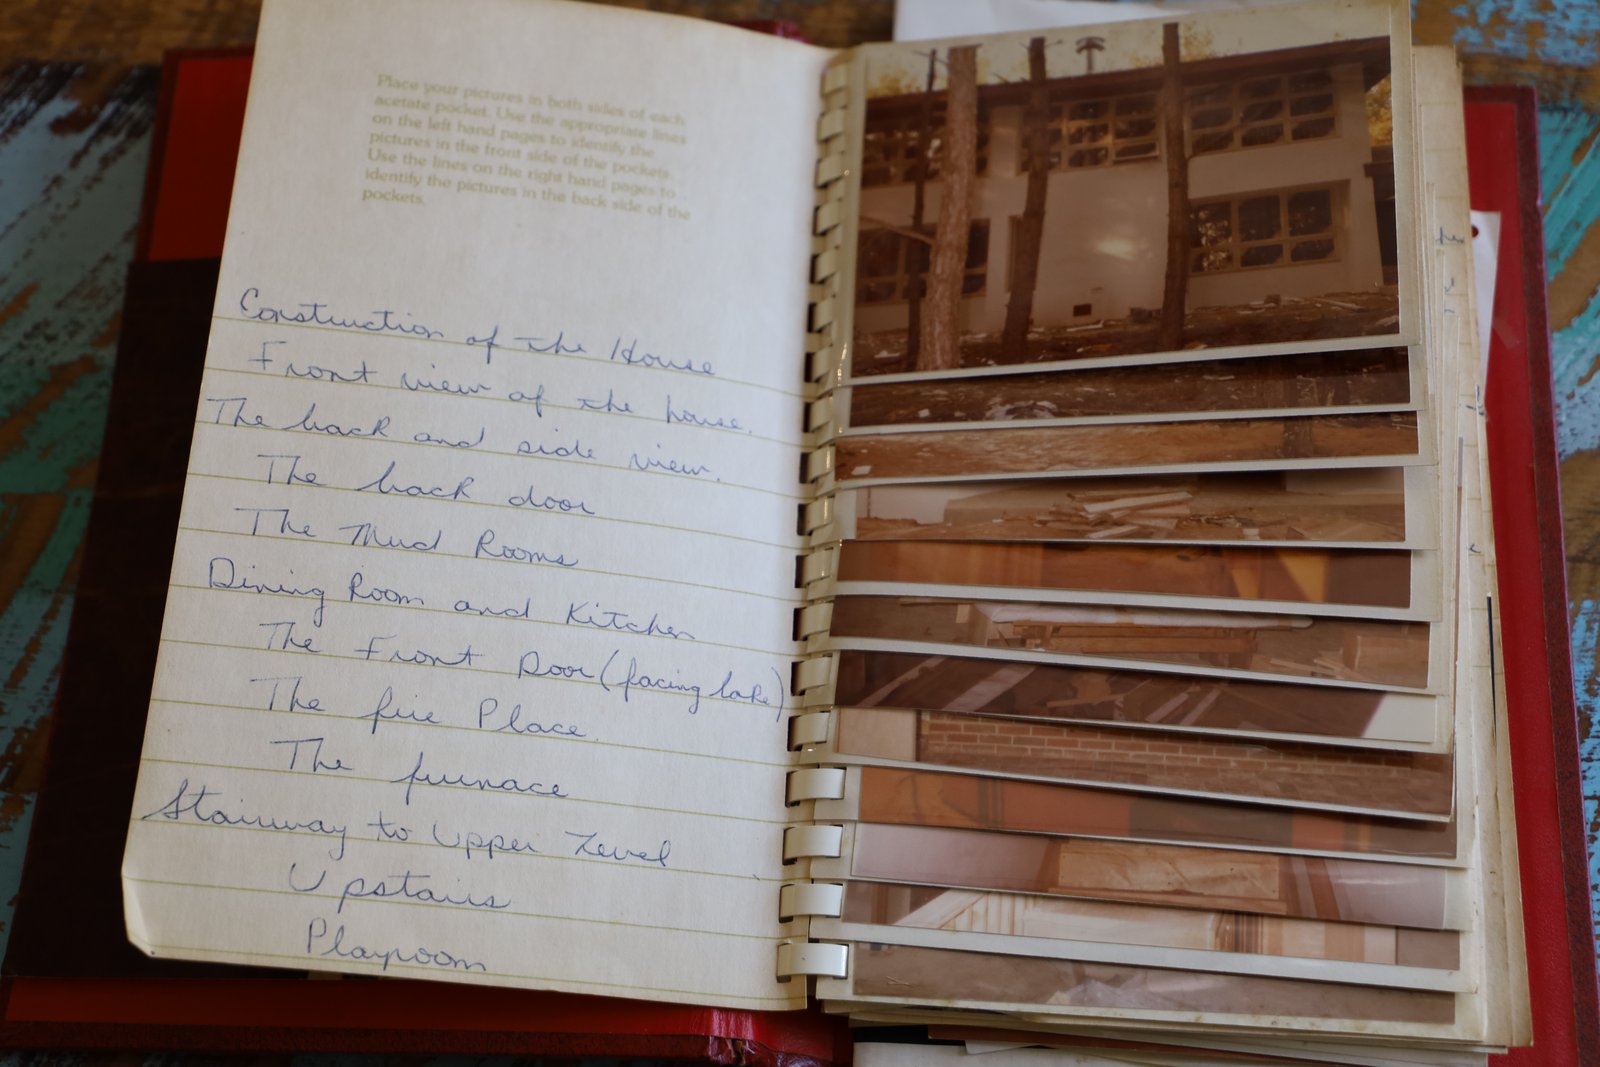 Place your pictures in both sides of each
acetate pocket. Use the appropriate lines
on the left hand pages to identify the
pictures in the front side of the pockets.
Use the lines on the right hand pages to
identify the pictures in the back side of the
pockets.
Construction of the House
Front view of the house.
The back and side view.
The back door
The Mud Rooms
Dining Room and Kitchen
The Front Door (facing lake)
The fire Place
The furnace
Stairway to Upper Level
Upstairs
Playroom